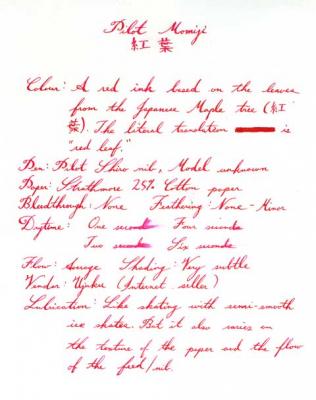 Pilot Momiji
紅葉
Colour: A red ink based on the leaves
from the Japanese Maple tree (紅
葉). The literal translation is
"red leaf."
Pen: Pilot Shiro nib, Model unknown
Paper: Strathmore 25% Cotton paper
Bleedthrough: None Feathering: None - Minor
Drytime: One second Four seconds
Two seconds Six seconds
Flow: Average Shading: Very subtle
Vendor: (Internet seller)
Lubrication: Like skating with semi-smooth
ice skates. But it also varies on
the texture of the paper and the flow
of the feed/nib.